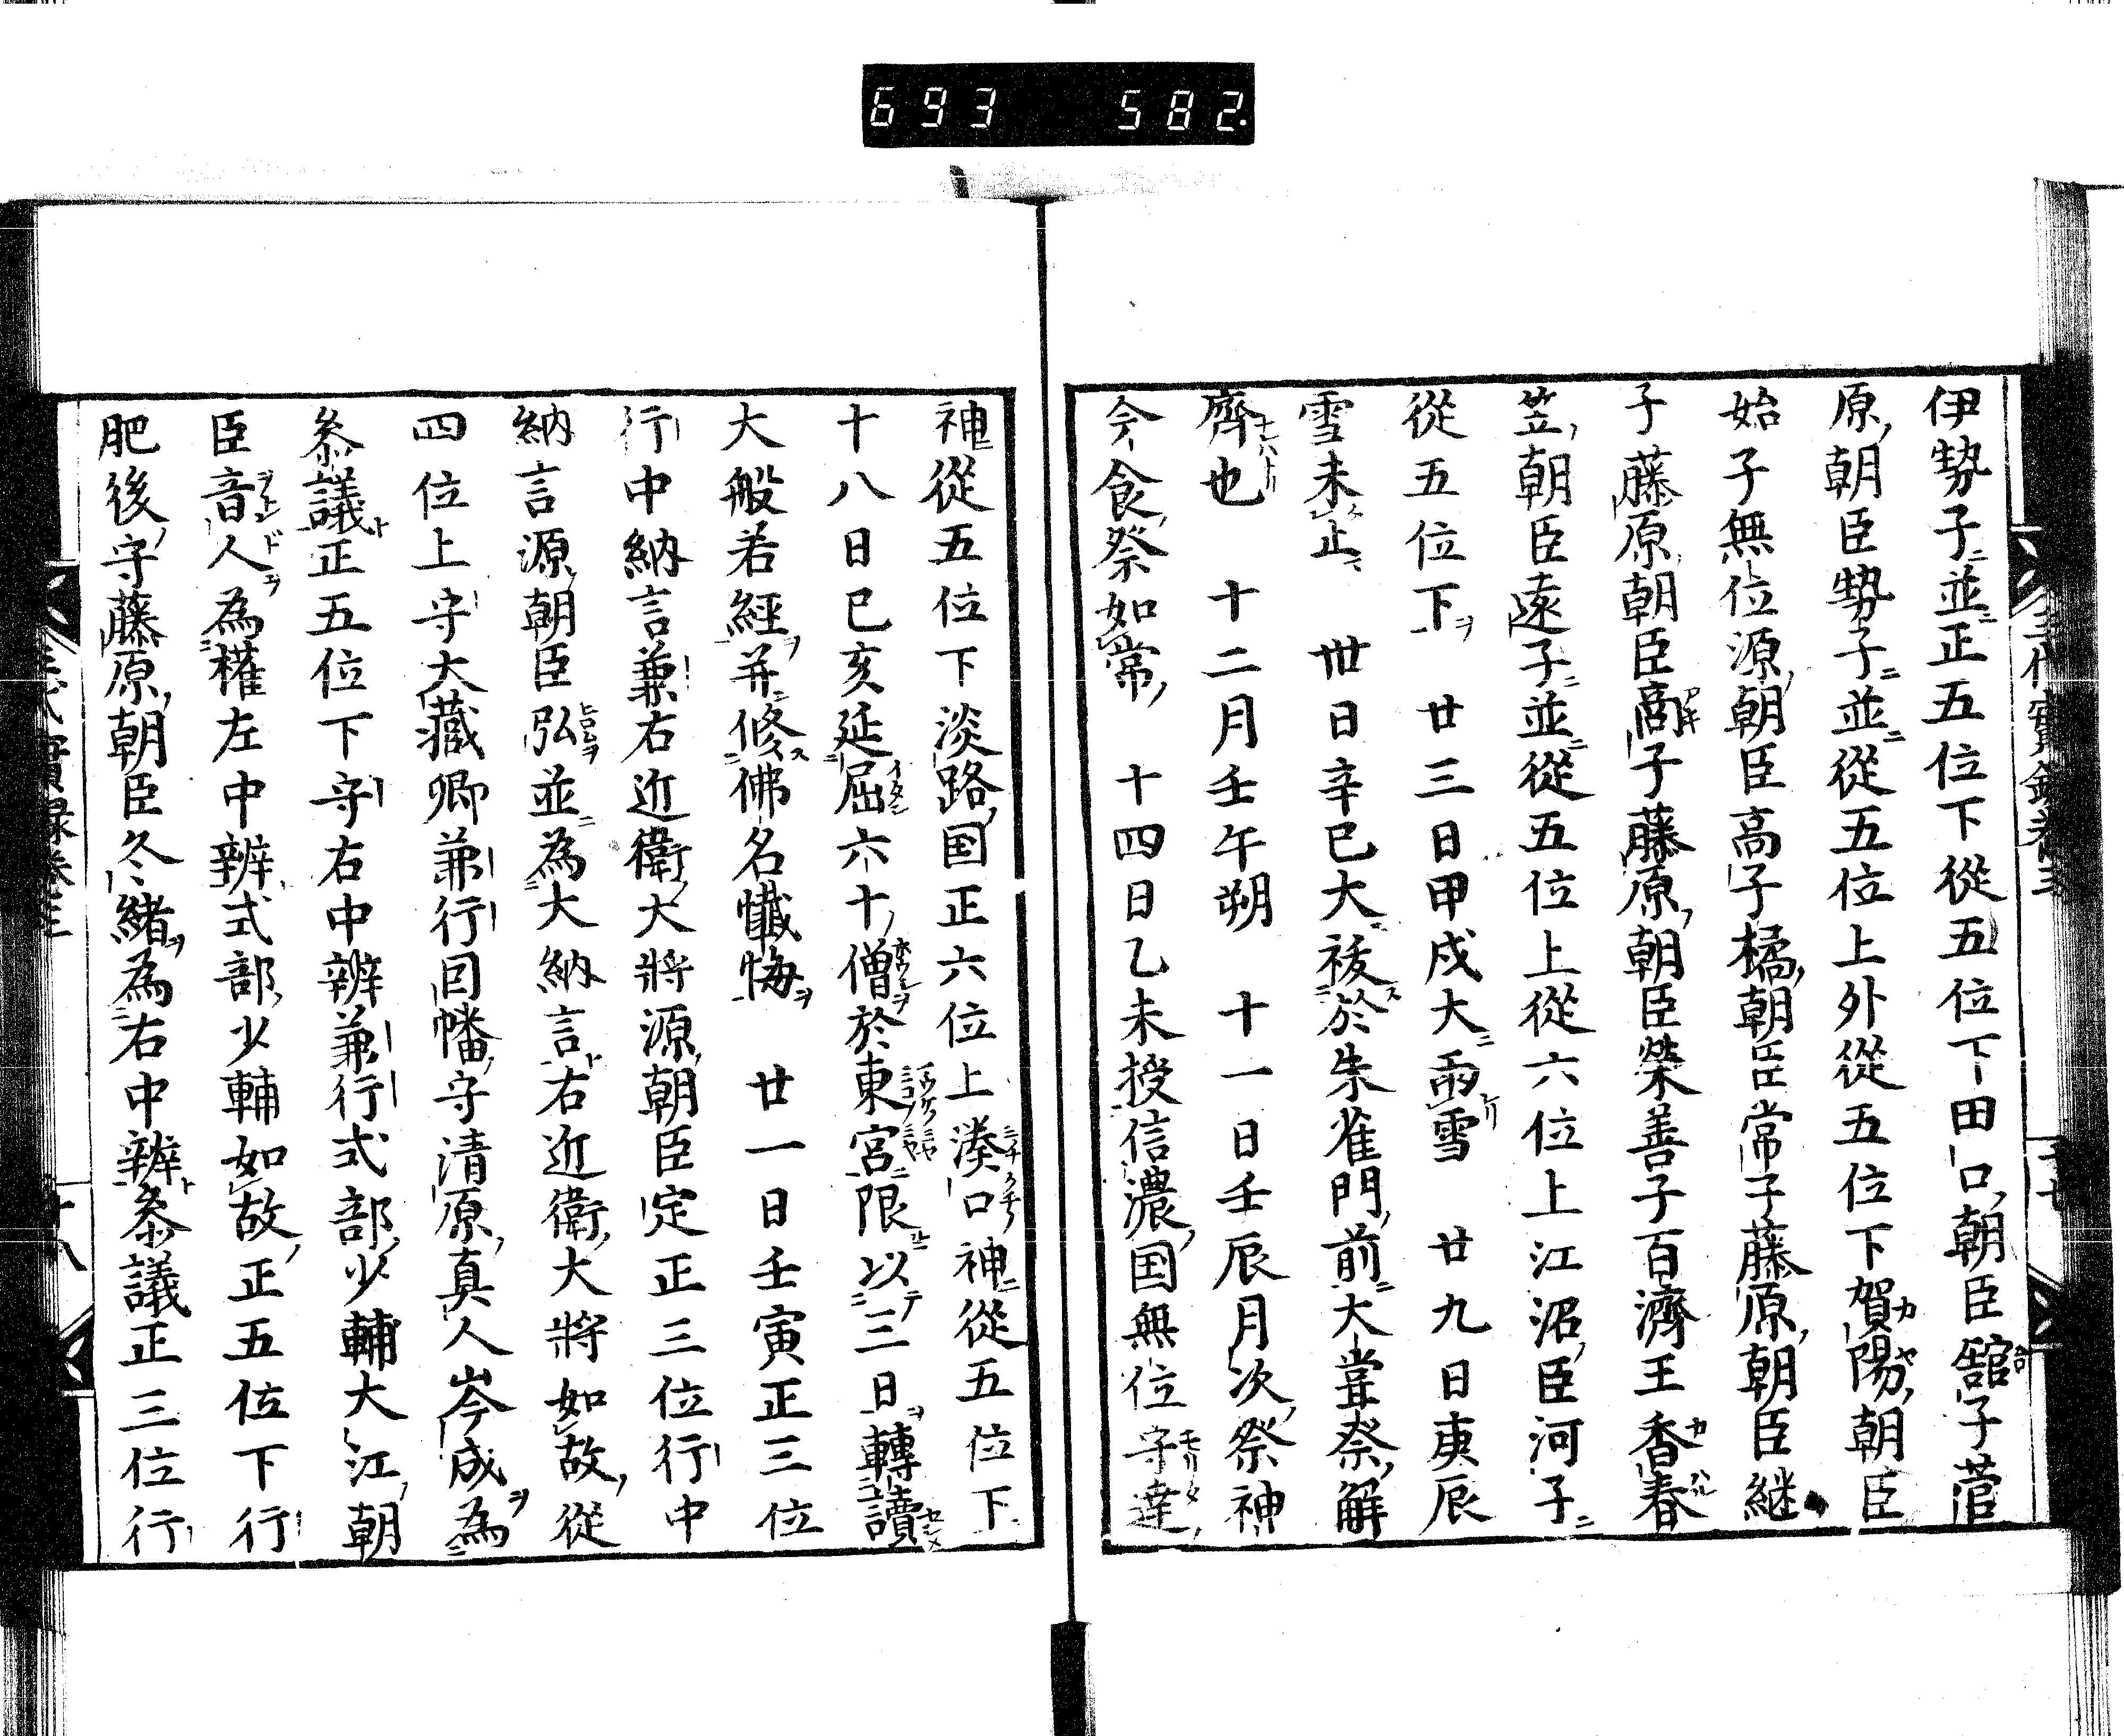 693 582.
伊勢子並正五位下從五位下田口朝臣舘子菅
原朝臣勢子並從五位上外從五位下賀陽朝臣
始子無位源朝臣高子橘朝臣常子藤原朝臣継
子藤原朝臣高子藤原朝臣榮善子百濟王香春
笠朝臣遠子並從五位上從六位上江沼臣河子
從五位下 廿三日甲戌大雨雪 廿九日庚辰
雪未止 卅日辛巳大祓於朱雀門前大甞祭解
齊也 十二月壬午朔 十一日壬辰月次祭神
今食祭如常 十四日乙未授信濃国無位守達
神從五位下淡路国正六位上湊口神從五位下
十八日己亥延屈六十僧於東宮限以三日轉讀
大般若經并修佛名懺悔 廿一日壬寅正三位
行中納言兼右近衛大將源朝臣定正三位行中
納言源朝臣弘並為大納言右近衛大將如故從
四位上守大藏卿兼行因幡守清原真人岑成為
叅議正五位下守右中辨兼行式部少輔大江朝
臣音人為權左中辨式部少輔如故正五位下行
肥後守藤原朝臣冬緒為右中辨叅議正三位行